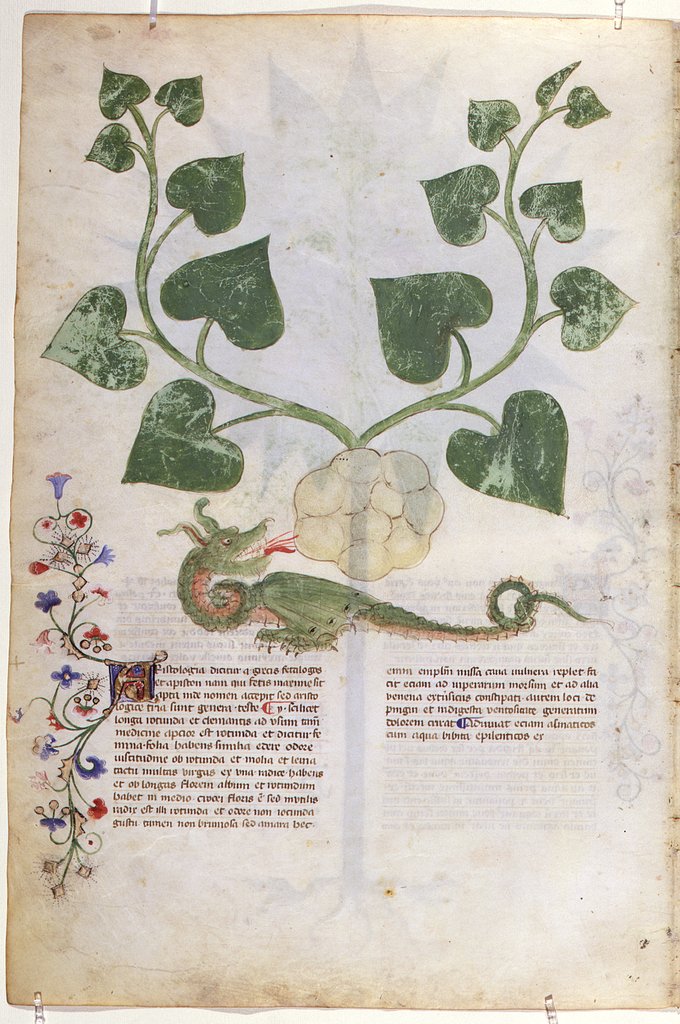 Aristologia dicitur a grecis fetalogos
et apiston nam qui fetis matrime sit
apta inde nomen accepit sed aristo
logie tria sunt genera teste p. scilicet
longa rotunda et clematis ad usum tam
medicine apcior est rotunda et dicitur fe
mina folia habens similia edere odore
suscitudine ob rotunda et molia et lenia
tactu multas virgas ex una radice habens
et ob longas florem album et rotundum
habet in medio croceus floris est sed inutilis
radix est illi rotunda et odore non iocunda
gustu tamen non brumosa sed amara hec
enim emplastri missa cava vulnera replet fa
cit eciam ad viperarum morsum et ad alia
venena extrisicus constipati autem loci de
pingit et indigesta ventositate generatim
dolorem curat Adiuvat eciam asmaticos
cum aqua bibita epilenticos ex